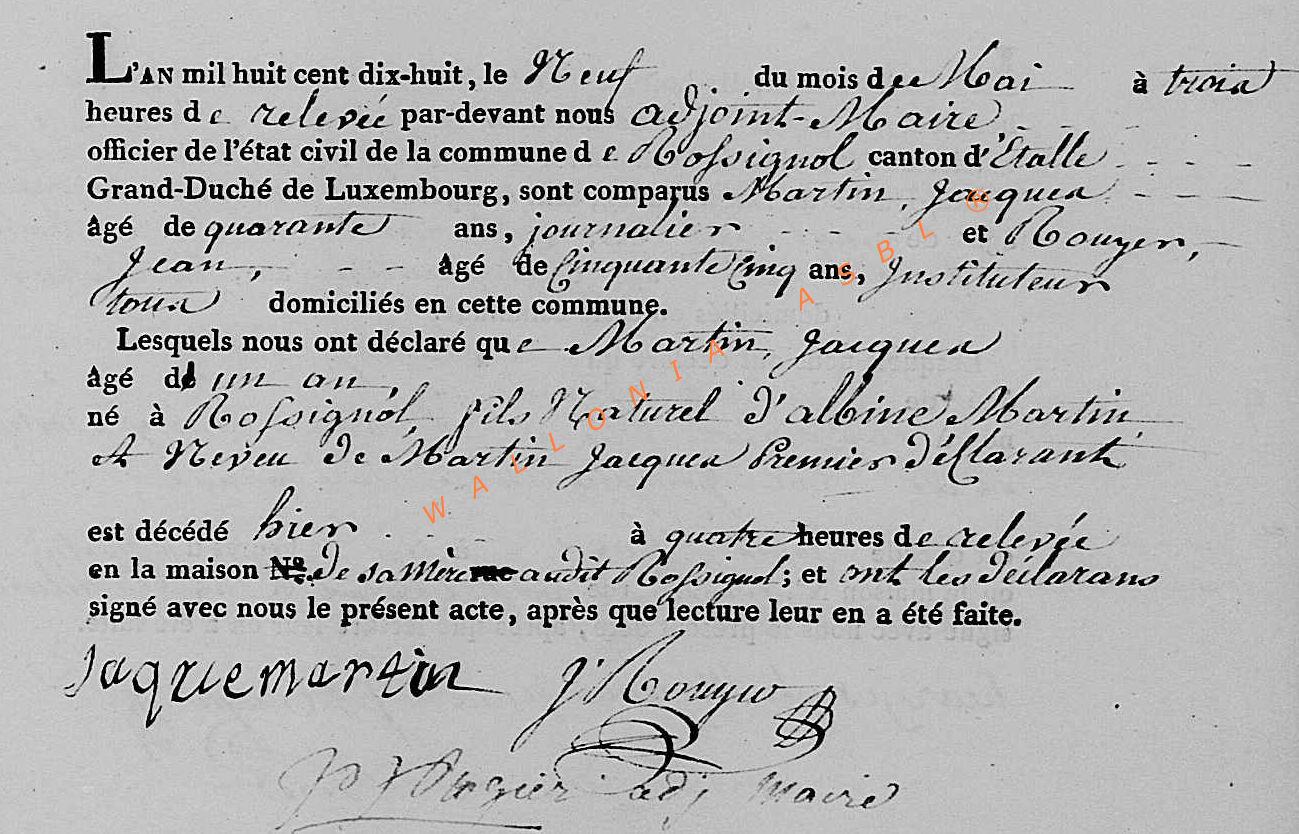 L'AN mil huit cent dix-huit, le Neuf du mois de Mai à trois
heures de relevée par-devant nous adjoint-Maire
officier de l'état civil de la commune de Rossignol canton d'Etalle
Grand-Duché de Luxembourg, sont comparus Martin, Jacques
âgé de quarante ans, journalier et Rouyer,
Jean, âgé de Cinquante Cinq ans, Instituteur
tous domiciliés en cette commune.
Lesquels nous ont déclaré que Martin, Jacques
âgé de un an,
né à Rossignol, fils Naturel d'albine Martin
et Neveu de Martin Jacques Premier déClarant
est décédé hier à quatre heures de relevée
en la maison N.º de sa mère rue audit Rossignol; et ont les déclarans
signé avec nous le présent acte, après que lecture leur en a été faite.
Jaque martin J Rouyer
adj maire
WALLONIA ASBL ®